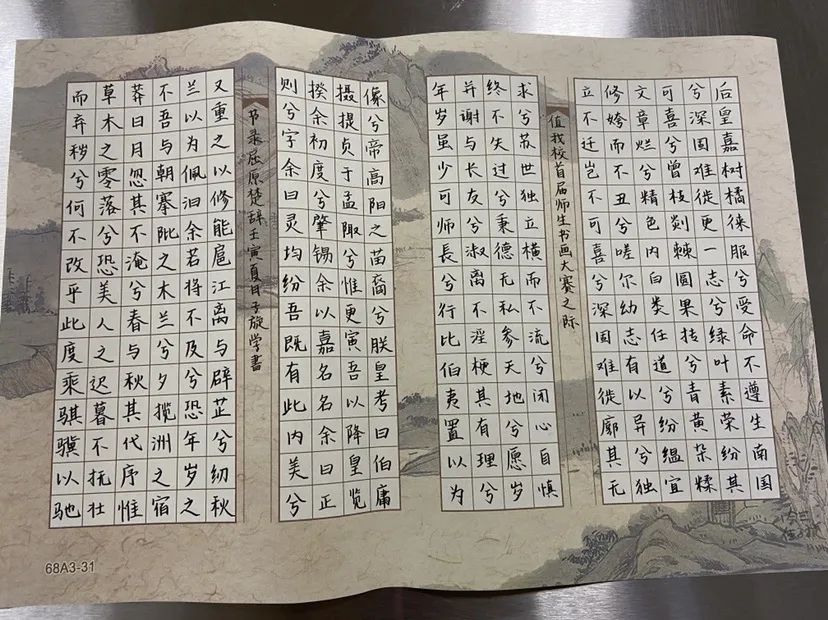 后皇嘉树橘徕服兮受命不遵生南国
兮深国难徙更一志兮绿叶素荣纷其
可喜兮曾枝剡棘圆果抟兮青黄杂糅
文章烂兮精色内白类任道兮纷缊宜
修姱而不丑兮嗟尔幼志有以异兮独
立不迁岂不可喜兮深国难徙廓其无
值我校首届师生书画大赛之际
求兮苏世独立横而不流兮闭心自慎
终不失过兮秉德无私参天地兮愿岁
并谢与长友兮淑离不淫梗其有理兮
年岁虽少可师長兮行比伯夷置以为
像兮帝高阳之苗裔兮朕皇考曰伯庸
摄提贞于孟陬兮惟更寅吾以降皇览
揆余初度兮肇锡余以嘉名名余曰正
则兮字余曰灵均纷吾既有此内美兮
节录屈原楚辞壬寅夏月子旋学書
又重之以修能扈江离与辟芷兮纫秋
兰以为佩汩余若将不及兮恐年岁之
不吾与朝搴阰之木兰兮夕揽洲之宿
莽日月忽其不淹兮春与秋其代序惟
草木之零落兮恐美人之迟暮不抚壮
而弃秽兮何不改乎此度乘骐骥以驰
68A3-31